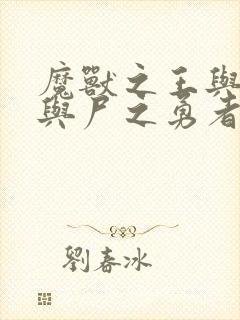 魔獸之王與
與尸之勇者
劉春冰